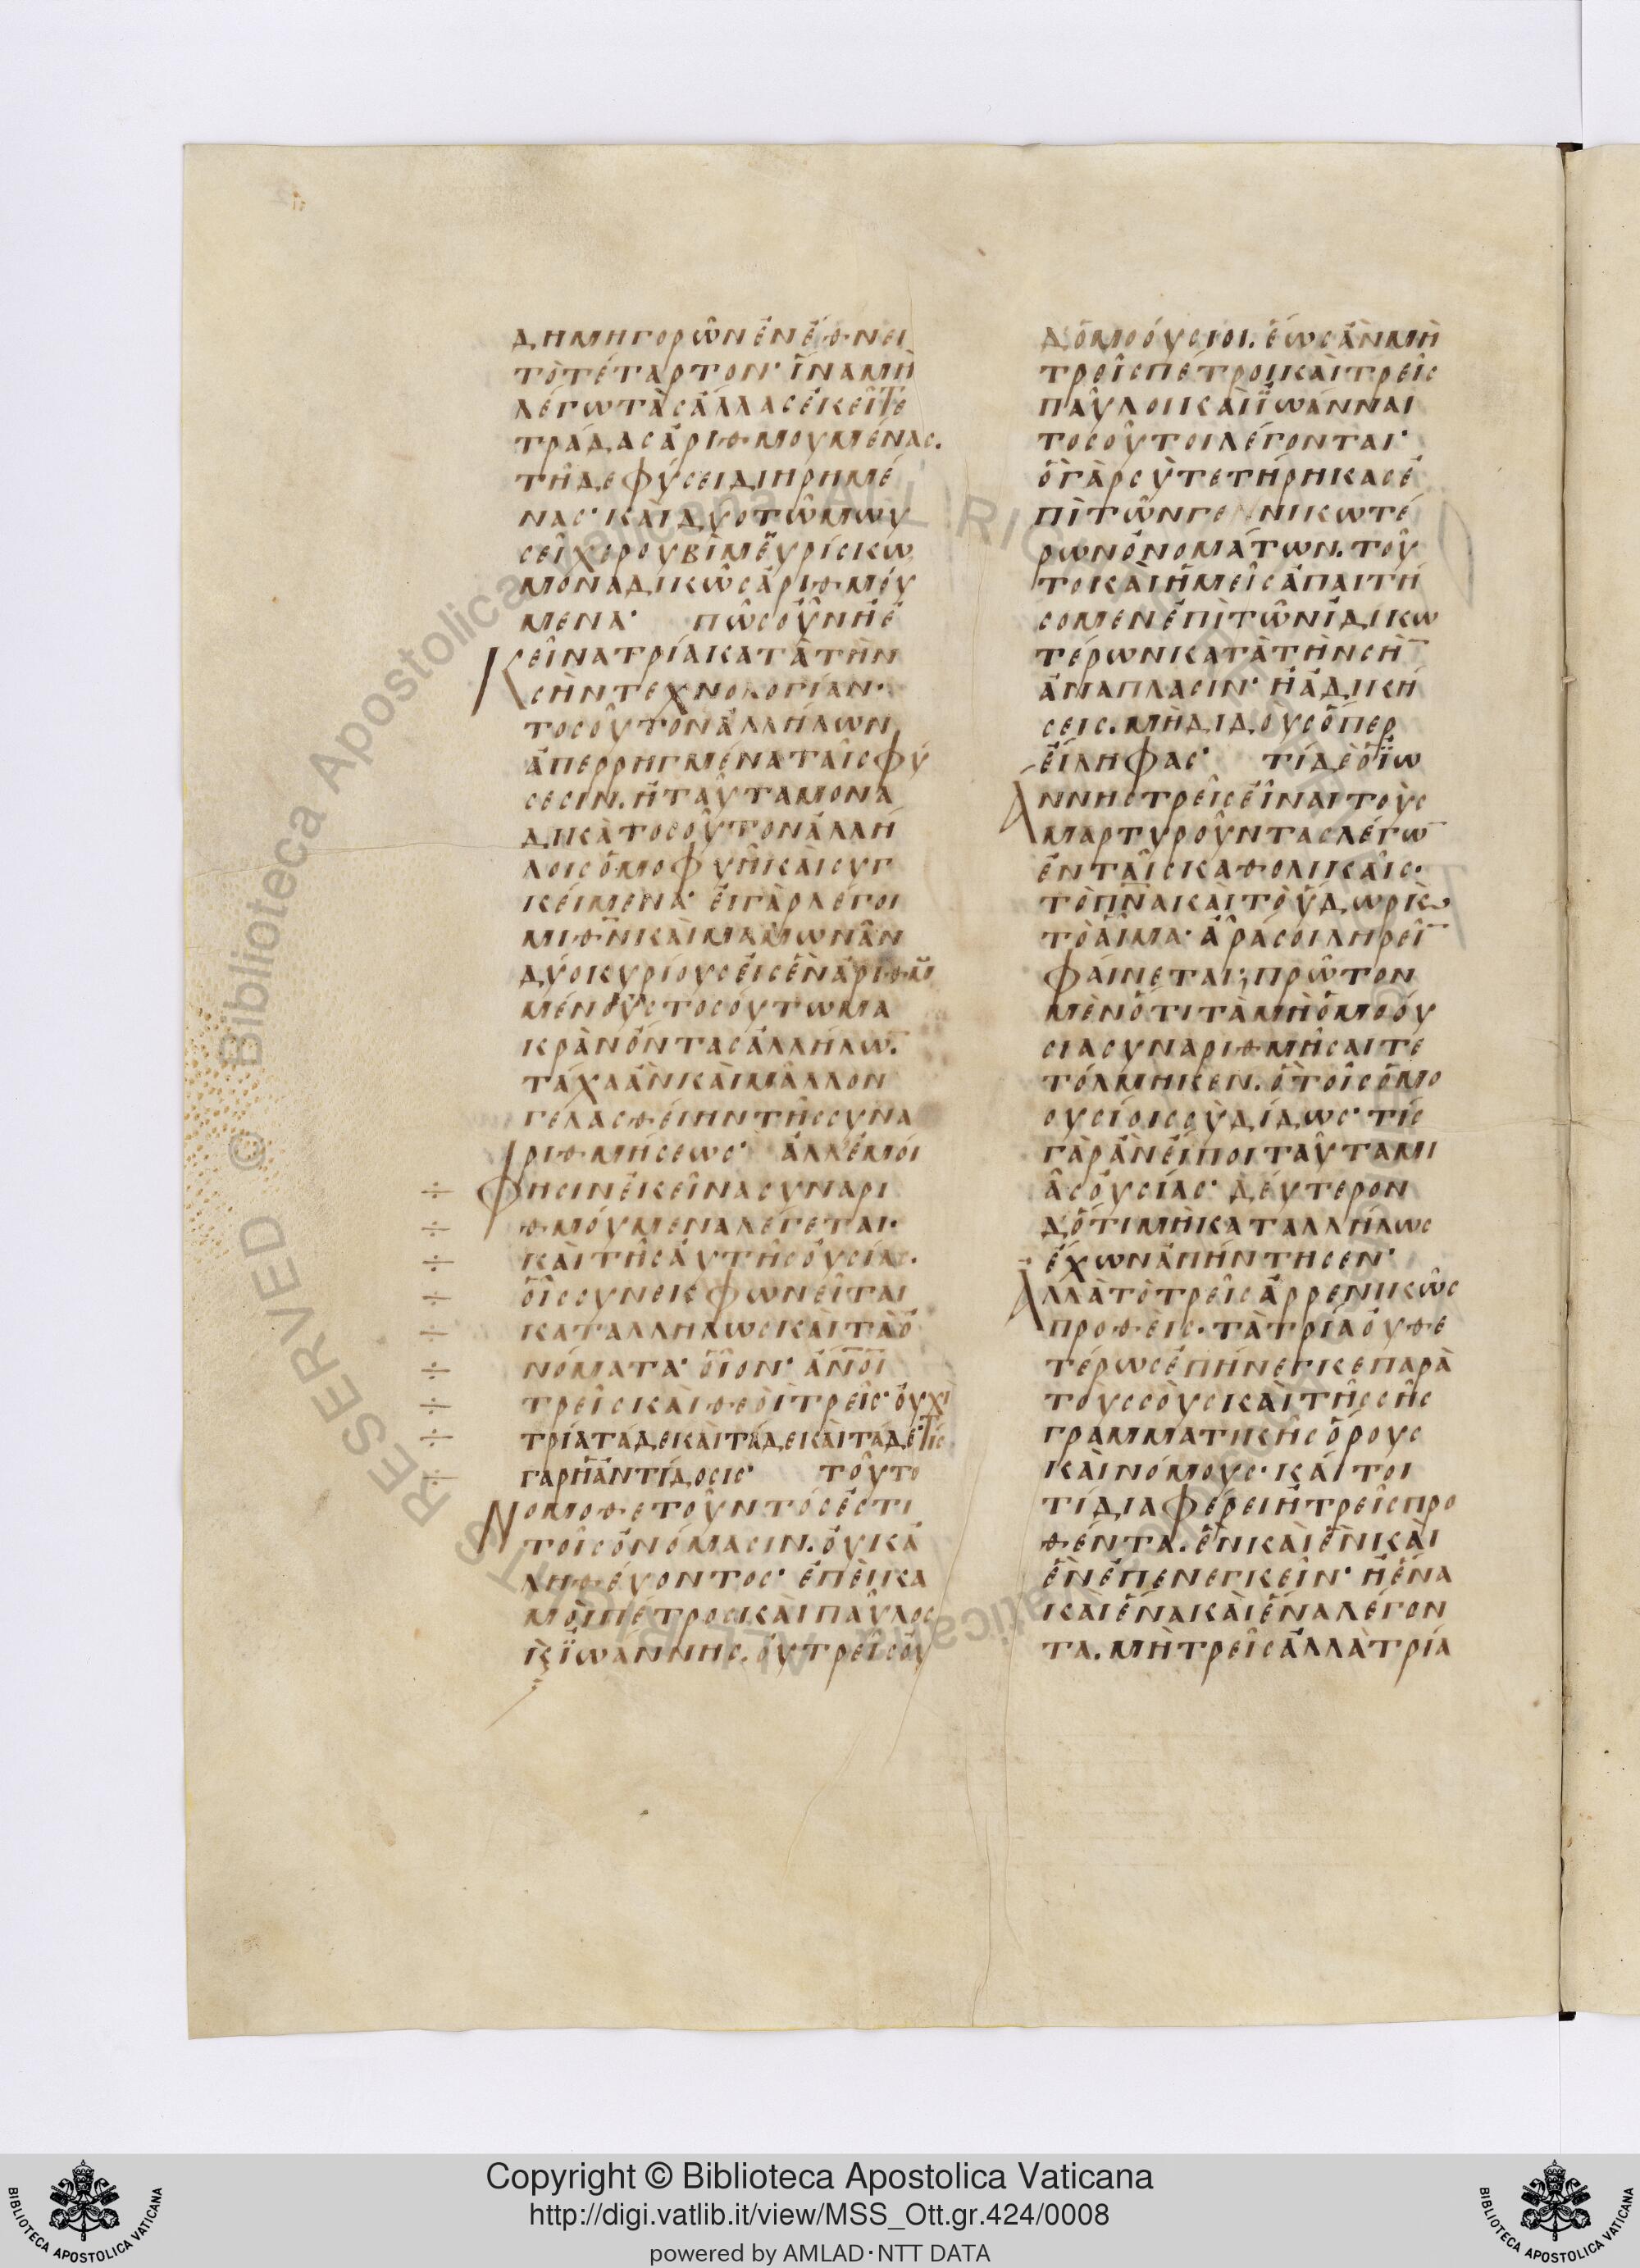 ΔΗΜΗΓΟΡῶΝ ἘΝ ἜΘΝΕΙ
ΤῸ ΤΈΤΑΡΤΟΝ· ἽΝΑ ΜῊ
ΛΈΓΩ ΤᾺΣ ἌΛΛΑΣ ἘΚΕῖ ΤΕ
ΤΡΆΔΑΣ ἈΡΙΘΜΟΥΜΈΝΑΣ.
ΤΗ͂ΔΕ ΦΎΣΕΙ ΔΙΗΡΗΜΈ
ΝΑΣ· ΚΑῚ ΔΥΟ ΤΩ͂ Μωΰ
ΣΕῖ ΧΕΡΟΥΒῚΜ ἙΥΡΊΣΚΩ
ΜΟΝΑΔΙΚΩ͂Σ ἈΡΙΘΜΟΎ
ΜΕΝΑ· ΠΩ͂Σ ΟὖΝ Ἢ Ἐ
ΚΕῖΝΑ ΤΡΊΑ ΚΑΤᾺ ΤῊΝ
ΣῊΝ ΤΕΧΝΟΛΟΓΊΑΝ·
ΤΟΣΟΥ͂ΤΟΝ ἈΛΛΉΛΩΝ
ἈΠΕΡΡΗΓΜΈΝΑ ΤΑῖΣ ΦΎ
ΣΕΣΙΝ. Ἢ ΤΑΥ͂ΤΑ ΜΟΝΑ
ΔΙΚᾺ ΤΟΣΟΥ͂ΤΟΝ ἈΛΛΉ
ΛΟΙΣ ὉΜΟΦΥΗ͂ ΚΑῚ ΣΥΓ
ΚΕΊΜΕΝΑ· ΕἸ ΓᾺΡ ΛΈΓΟΙ
ΜΙ ΘΝ̅ ΚΑῚ ΜΑΜΩΝΑ͂Ν
ΔΎΟ ΚΥΡΊΟΥΣ ΕἸΣ ἛΝ ἈΡΙΘΜΟΥ
ΜΈΝΟΥΣ ΤΟΣΟΎΤΩ ΜΑ
ΚΡᾺΝ ὌΝΤΑΣ ἈΛΛΉΛΩ̅.
ΤΆΧΑ ἊΝ ΚΑῚ ΜΑ͂ΛΛΟΝ
ΓΕΛΑΣΘΕΊΗΝ ΤΗ͂Σ ΣΥΝΑ
ΡΙΘΜΉΣΕΩΣ· ἈΛΛ ἘΜΟΊ
ΦΗΣΙΝ ἘΚΕῖΝΑ ΣΥΝΑΡΙ
ΘΜΟΎΜΕΝΑ ΛΈΓΕΤΑΙ·
ΚΑῚ ΤΗ͂Σ ἈΥΤΗ͂Σ ὈΥΣΊΑΣ.
ΟἿΣ ΣΥΝΕΚΦΩΝΕῖΤΑΙ
ΚΑΤΑΛΛΗΛΩΣ ΚΑῚ ΤᾺ Ὀ
ΝΌΜΑΤΑ· ΟἿΟΝ· ΑΝ̅ΟΙ
ΤΡΕῖΣ ΚΑῚ ΘΕΟῚ ΤΡΕῖΣ· ΟΥΧῚ
ΤΡΊΑ ΤΆΔΕ ΚΑῚ ΤΆΔΕ ΚΑῚ ΤΆΔΕ· ΤΊΣ
ΓΑΡ Ἡ ἈΝΤΊΔΟΣΙΣ· ΤΟΥ͂ΤΟ
ΝΟΜΟΘΕΤΟΥ͂ΝΤΌΣ ἘΣΤΙ
ΤΟῖΣ ὈΝΌΜΑΣΙΝ. ΟΥΚ Ἀ
ΛΗΘΕΎΟΝΤΟΣ· ἘΠΕῚ ΚΑ
ΜΟῚ ΠΈΤΡΟΣ ΚΑῚ ΠΑΥ͂ΛΟΣ
Κ̀ ἸΩΆΝΝΗΣ. ΟΥ ΤΡΕῖΣ ΟΥ
Δ ὉΜΟΟΎΣΙΟΙ. ἝΩΣ ἊΝ ΜῊ
ΤΡΕῖΣ ΠΈΤΡΟΙ ΚΑῚ ΤΡΕῖΣ
ΠΑΥ͂ΛΟΙ ΚΑῚ ἸΩΆΝΝΑΙ
ΤΟΣΟΥ͂ΤΟΙ ΛΈΓΟΝΤΑΙ·
Ὃ ΓᾺΡ ΣῪ ΤΕΤΉΡΗΚΑΣ Ἐ
ΠῚ ΤΩ͂Ν ΓΕΝΝΙΚΩΤΈ
ΡΩΝ ὈΝΟΜΆΤΩΝ. ΤΟΥ͂
ΤΟ ΚΑῚ ἩΜΕῖΣ ἈΠΑΙΤΉ
ΣΟΜΕΝ ἘΠῚ ΤΩ͂Ν ἸΔΙΚΩ
ΤΈΡΩΝ ΚΑΤᾺ ΤῊΝ ΣῊ̅
ἈΝΑΠΛΑΣΙΝ· Ἢ ἈΔΙΚΉ
ΣΕΙΣ. ΜῊ ΔΙΔΟῪΣ ὍΠΕΡ
ΕἼΛΗΦΑΣ· ΤΊ ΔΈ Ὁ ἸΩ
ΆΝΝΗΣ ΤΡΕῖΣ ΕἾΝΑΙ ΤΟῪΣ
ΜΑΡΤΥΡΟΥ͂ΝΤΑΣ ΛΈΓΩ̅
ἘΝ ΤΑῖΣ ΚΑΘΟΛΙΚΑῖΣ·
ΤῸ ΠΝ̅Α ΚΑῚ ΤῸ ὝΔΩΡ Κ̀
ΤῸ ΑἿΜΑ· ἎΡΑ ΣΟΙ ΛΗΡΕῖ̅
ΦΑΊΝΕΤΑΙ; ΠΡΩ͂ΤΟΝ
ΜῈΝ ὍΤΙ ΤᾺ ΜῊ ὉΜΟΟΎ
ΣΙΑ ΣΥΝΑΡΙΘΜΗ͂ΣΑΙ ΤΕ
ΤΌΛΜΗΚΕΝ. Ὃ ΤΟῖΣ ὉΜΟ
ΟΥΣΊΟΙΣ ΣῪ ΔΊΔΩΣ· ΤΊΣ
ΓᾺΡ ἊΝ ΕἼΠΟΙ ΤΑΥ͂ΤΑ ΜΙ
Α͂Σ ΟΥΣΊΑΣ· ΔΕΎΤΕΡΟΝ
Δ ὍΤΙ ΜῊ ΚΑΤΑΛΛΉΛΩΣ
ἜΧΩΝ ἈΠΉΝΤΗΣΕΝ·
ἈΛΛᾺ ΤῸ ΤΡΕῖΣ ἈΡΡΕΝΙΚΩ͂Σ
ΠΡΟΘΕῚΣ· ΤᾺ ΤΡΊΑ ΟΥΘΕ
ΤΈΡΩΣ ἘΠΉΝΕΓΚΕ ΠΑΡᾺ
ΤΟῪΣ ΣΟῪΣ ΚΑῚ ΤΗ͂Σ ΣΗ͂Σ
ΓΡΑΜΜΑΤΙΚΗ͂Σ ὍΡΟΥΣ
ΚΑῚ ΝΌΜΟΥΣ· ΚΑΊ ΤΟΙ
ΤΊ ΔΙΑΦΈΡΕΙ Ἢ ΤΡΕῖΣ ΠΡΟ
ΘΈΝΤΑ. ἛΝ ΚΑῚ ἛΝ ΚΑῚ
ἛΝ ἘΠΕΝΕΓΚΕῖΝ· Ἢ ἝΝΑ
ΚΑῚ ἝΝΑ ΚΑῚ ἝΝΑ ΛΈΓΟΝ
ΤΑ. ΜῊ ΤΡΕῖΣ ἈΛΛᾺ ΤΡΊΑ
RESERVED © Biblioteca Apostolica Vaticana ALL RIGHTS
Copyright © Biblioteca Apostolica Vaticana
http://digi.vatlib.it/view/MSS_Ott.gr.424/0008
powered by AMLAD·NTT DATA
BIBLIOTECA APOSTOLICA VATICANA
BIBLIOTECA APOSTOLICA VATICANA